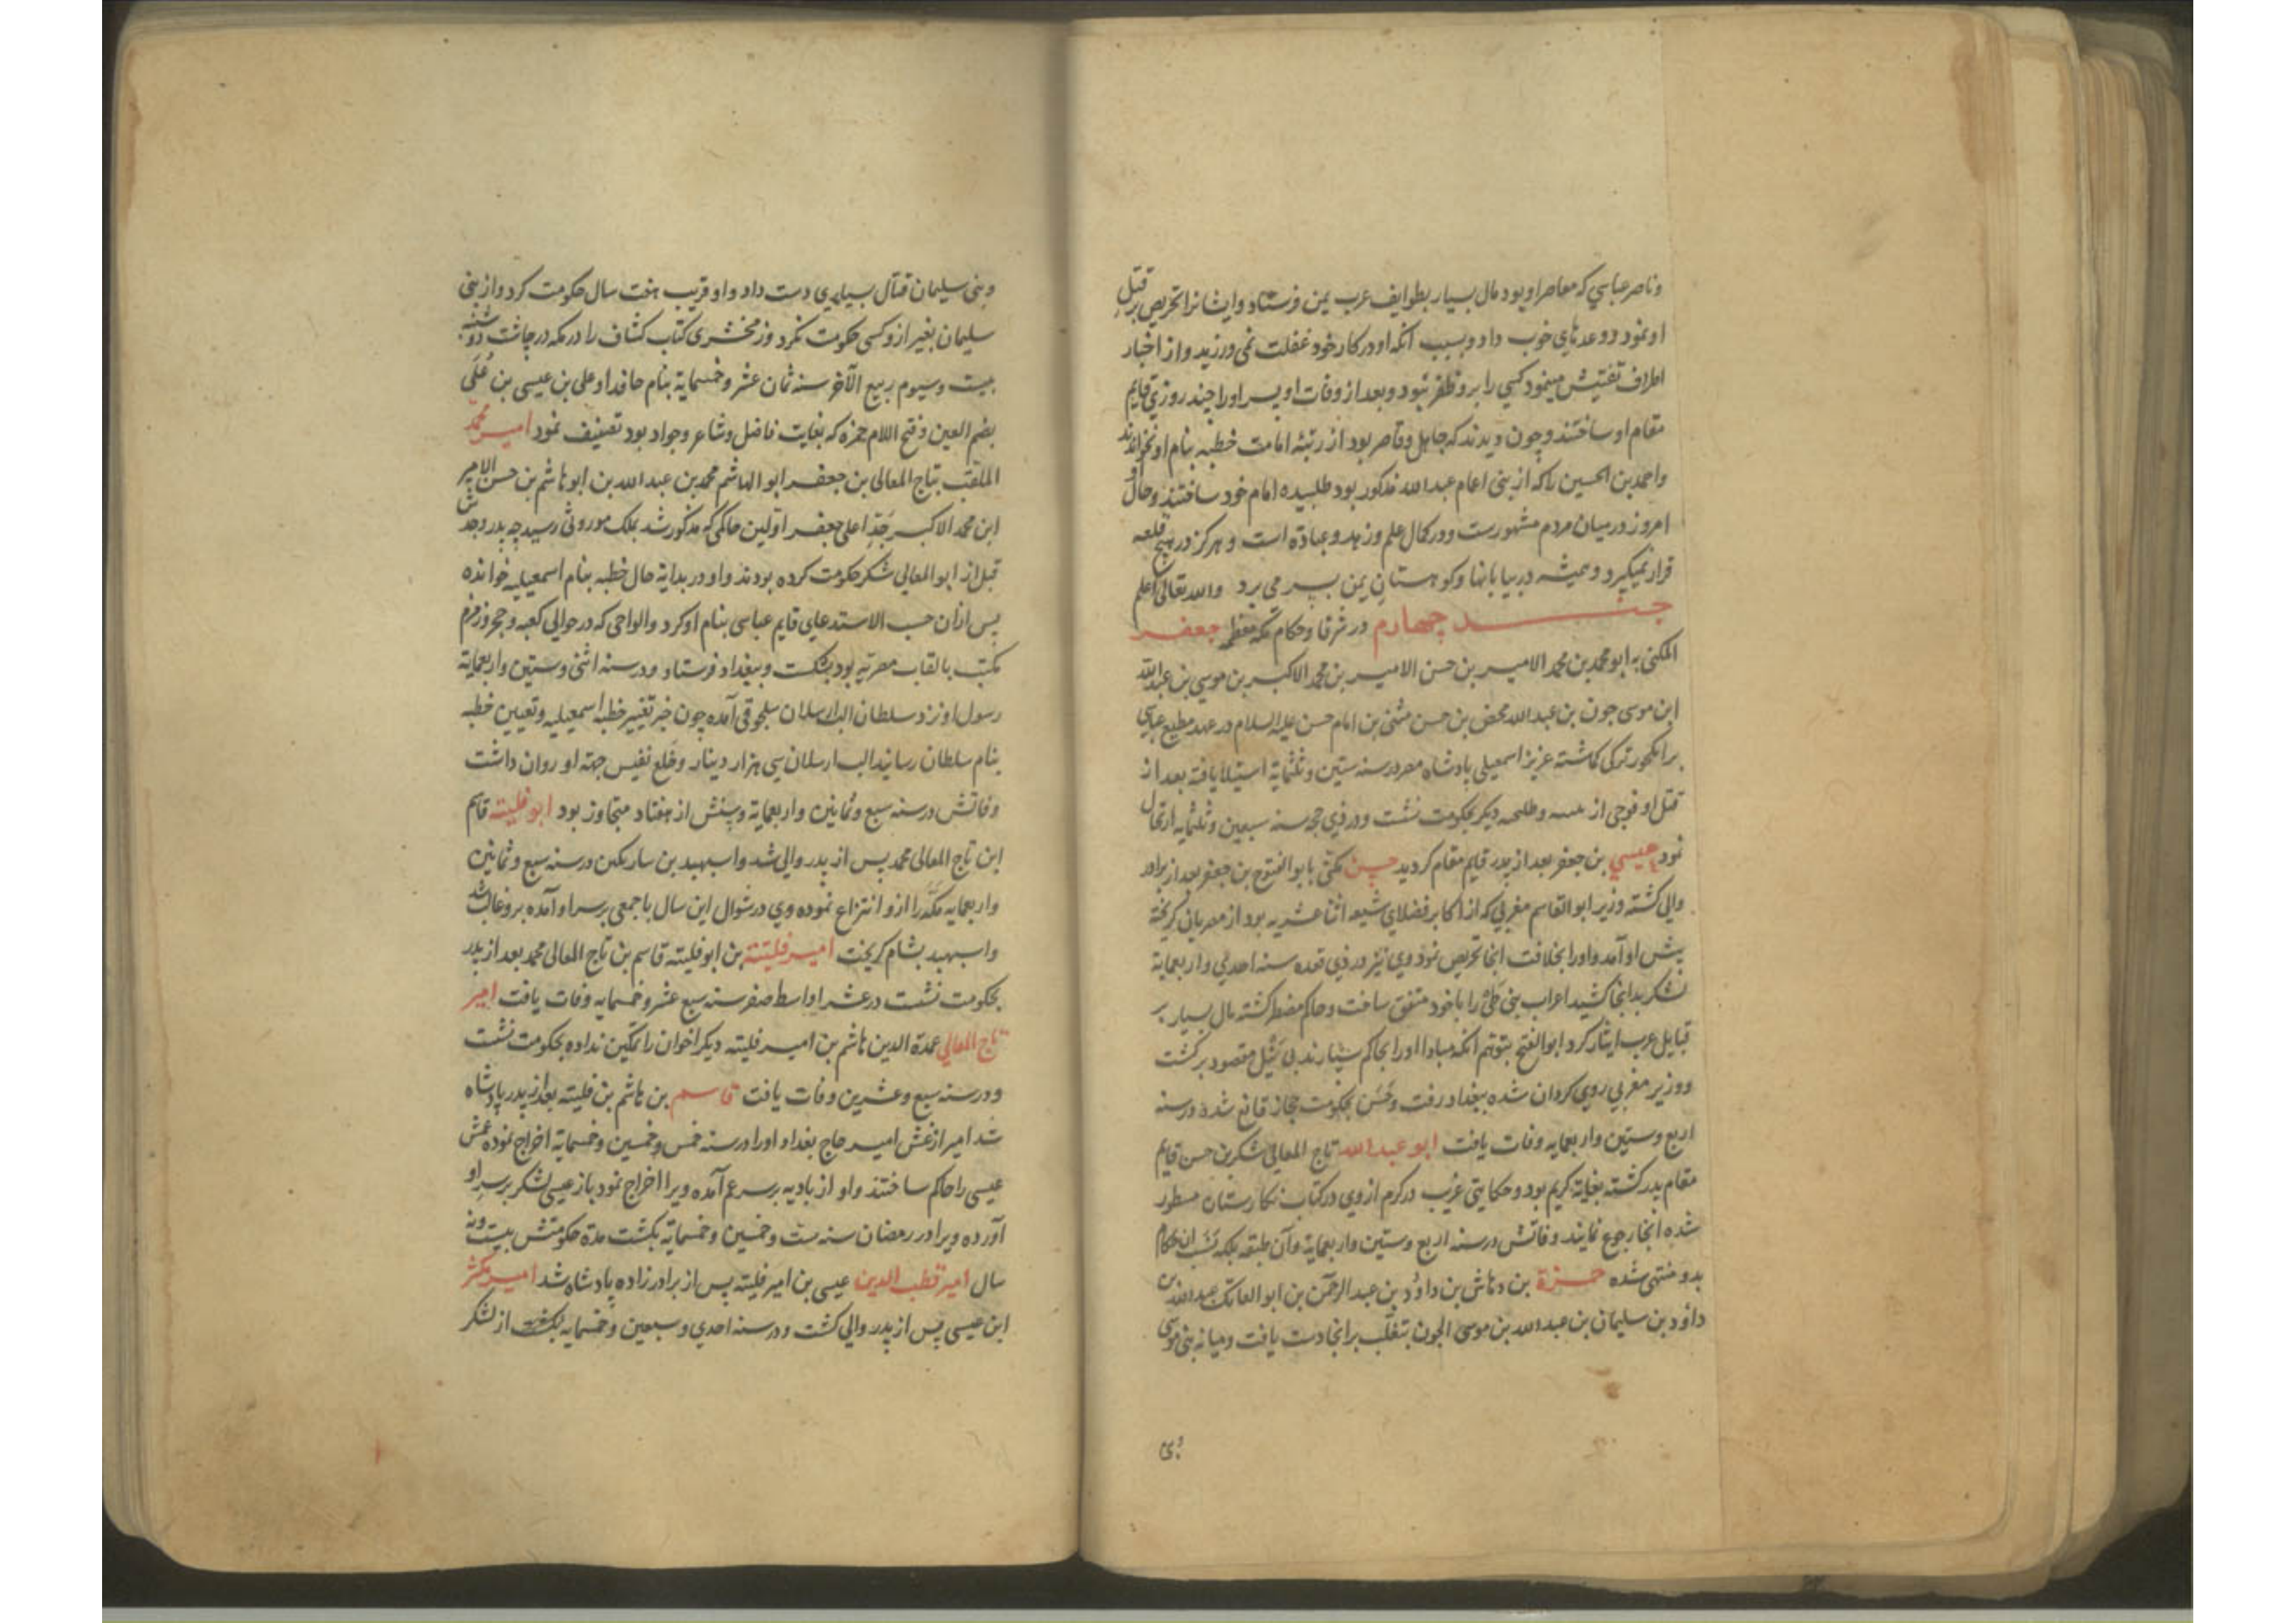 وناصر عباسي که معاصر او بود مال بسیار بطوایف عرب یمن فرستاد وایشانرا تحریص بر قتل
او نمود ووعدهای خوب داد وبسبب آنکه او در کار خود غفلت نمی ورزید واز اخبار
اطراف تفتیش مینمود کسی را برو ظفر نبود وبعد از وفات او پسر اورا چند روزی قایم
مقام او ساختند وچون دیدند که جاهل وقاصر بود از رتبهٔ امامت خطبه بنام او نخواندند
واحمد بن الحسین را که از بنی اعمام عبدالله مذکور بود طلبیده امام خود ساختند وحال او
امروز در میان مردم مشهورست ودر کمال علم وزهد وعبادة است وهرکز در هیچ قلعه
قرار نمیکیرد وهمیشه در بیابانها وکوهستان یمن بسر می برد والله تعالی اعلم
چهارم در شرفا وحکام مکه معظمه جعفر
المکنی به ابو محمد بن محمد الامیر بن حسن الامیر بن محمد الاکبر بن موسی بن عبدالله
ابن موسی جون بن عبدالله محض بن حسن مثنی بن امام حسن علیه السلام در عهد مطیع عباسی
بر انکجور ترکی کماشته عزیز اسمعیلی پادشاه مصر در سنه ستین وثلثمایة استیلا یافته بعد از
قتل او فوجی از وطلحه دیکر بحکومت نشست ودر ذی حجه سنه سبعین وثلثمایه ارتحال
نمود عیسی بن جعفر بعد از پدر قایم مقام کردید حسن مکنی بابو الفتوح بن جعفر بعد از برادر
والی کشته وزیر ابو القاسم مغربی که از اکابر فضلای شیعه اثنا عشریه بود از مصریان کریخته
پیش او آمد واورا بخلافت انجا تحریص نمود وی نیز در ذی قعده سنه احدی واربعمایة
لشکر بدانجا کشید اعراب بنی طی را با خود متفق ساخت وحاکم مضطر کشته مال بسیار بر
قبایل عرب ایثار کرد ابو الفتح بتوهم آنکه مبادا اورا بحاکم سپارند بی نیل مقصود برکشت
ووزیر مغربی روی کردان شده ببغداد رفت وحسن بحکومت حجاز قانع شد ودر سنه
اربع وستین واربعمایه وفات یافت ابو عبدالله تاج المعالی شکر بن حسن قایم
مقام پدر کشته بغایة کریم بود وحکایتی غریب در کرم از وی در کتاب نکارستان مسطور
شده انجا رجوع نمایند وفاتش در سنه اربع وستین واربعمایة وآن طبقه بلکه نسب ان حکام
بدو منتهی شده حمزة بن وهاس بن داود بن عبد الرحمن بن ابو الفاتک عبدالله بن
داود بن سلیمان بن عبدالله بن موسی الجون بتغلب بر انجا دست یافت ومیانه بنی موسی
وبنی
وبنی سلیمان قتال بسیاری دست داد واو قریب هفت سال حکومت کرد واز بنی
سلیمان بغیر ازو کسی حکومت نکرد وزمخشری کتاب کشاف را در مکه در چاشت دوشنبه
بیست وسیوم ربیع الآخر سنه ثمان عشر وخمسمایة بنام حافد او علی بن عیسی بن علی
بضم العین وفتح اللام حمزه که بغایت فاضل وشاعر وجواد بود تصنیف نمود امیر محمد
الملقب بتاج المعالی بن جعفر ابو الهاشم محمد بن عبدالله بن ابو هاشم بن حسن الامیر
ابن محمد الاکبر جد اعلی جعفر اولین حاکمی که مذکور شد بملک موروثی رسید چه پدر وجدش
قبل از ابو المعالی شکر حکومت کرده بودند واو در بدایة حال خطبه بنام اسمعیلیه خوانده
پس ازان حسب الاستدعای قایم عباسی بنام او کرد والواحی که در حوالی کعبه وحجر وزمزم
مکتب بالقاب مصریه بود بشکست وببغداد فرستاد ودر سنه اثنی وستین واربعمایة
رسول او نزد سلطان الب ارسلان سلجوقی آمده چون خبر تغییر خطبه اسمعیلیه وتعیین خطبه
بنام سلطان رسانید الب ارسلان سی هزار دینار وخلع نفیس جهة او روان داشت
وفاتش در سنه سبع وثمانین واربعمایة وسنش از هفتاد متجاوز بود ابو فلیته قاسم
ابن تاج المعالی محمد پس از پدر والی شد واسبهبد بن سارتکین در سنه سبع وثمانین
واربعمایه مکه را ازو انتزاع نموده وی در شوال این سال با جمعی بر سر او آمده برو غالب شد
واسبهبد بشام کریخت امیر فلیتة بن ابو فلیته قاسم بن تاج المعالی محمد بعد از پدر
بحکومت نشست در عشر اواسط صفر سنه سبع عشر وخمسمایه وفات یافت امیر
تاج المعالی عمدة الدین هاشم بن امیر فلیته دیکر اخوان را تمکین نداده بحکومت نشست
ودر سنه سبع وعشرین وفات یافت قاسم بن هاشم بن فلیته بعد از پدر پادشاه
شد امیر ارغش امیر حاج بغداد اورا در سنه خمس وخمسین وخمسمایة اخراج نموده عمش
عیسی را حاکم ساختند واو از بادیه بر سر عم آمده ویرا اخراج نمود باز عیسی لشکر بر سر او
آورده ویرا در رمضان سنه ست وخمسین وخمسمایة بکشت مدة حکومتش بیست ونه
سال امیر قطب الدین عیسی بن امیر فلیته پس از برادر زاده پادشاه شد امیر مکثر
ابن عیسی پس از پدر والی کشت ودر سنه احدی وسبعین وخمسمایه از لشکر